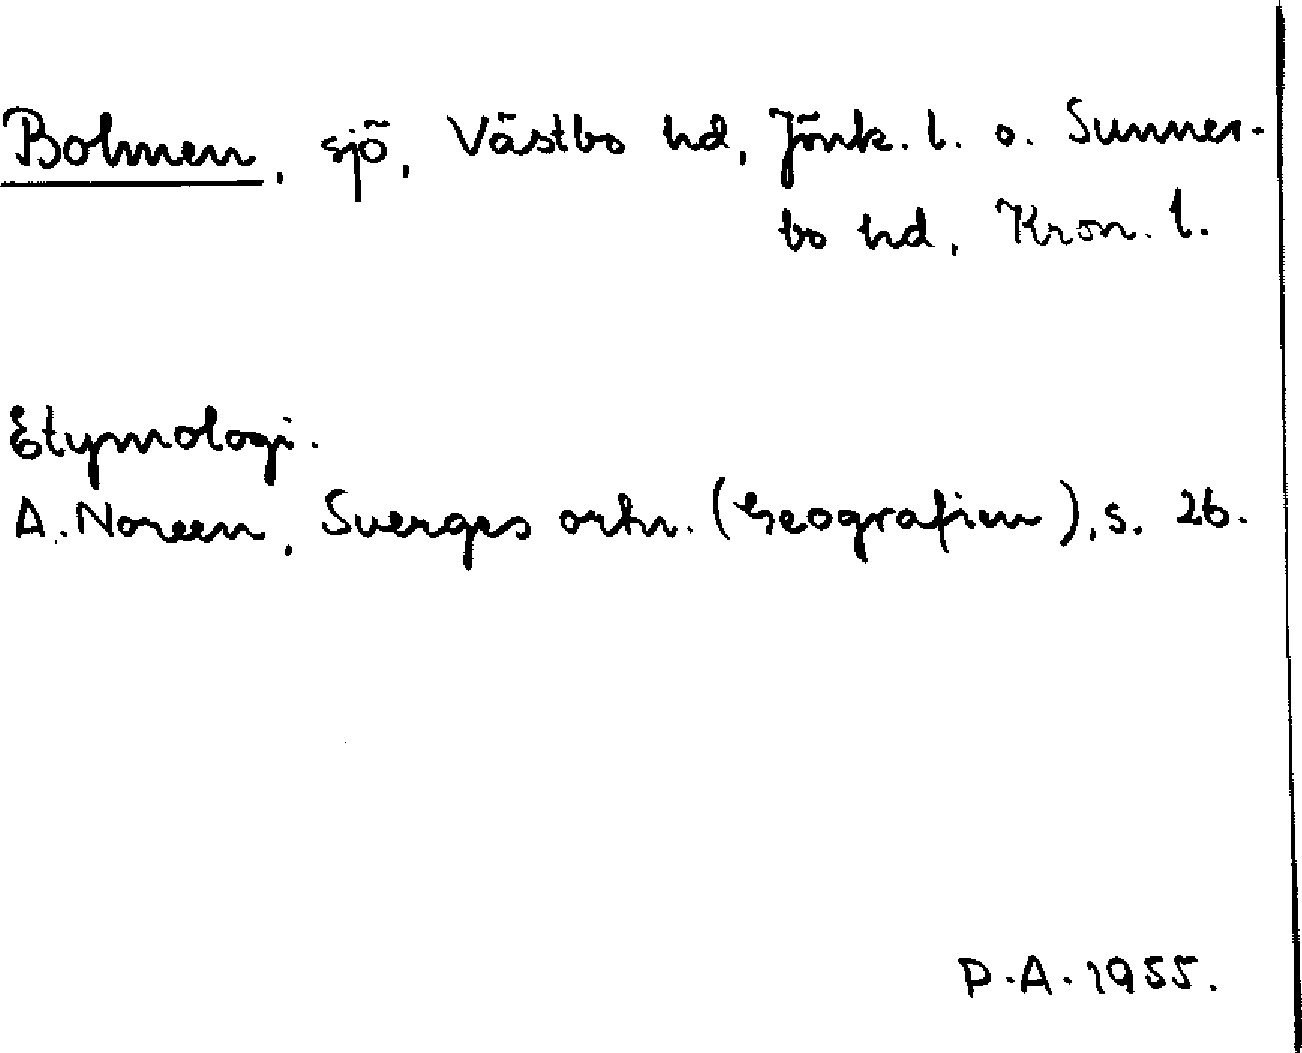 Bolmen, sjö, Västbo hd, Jönk. l. o. Sunner-
bo hd, Kron. l.
Etymologi.
A. Noreen, Sverges ortn. (Geografien), s. 26.
P.A. 1955.